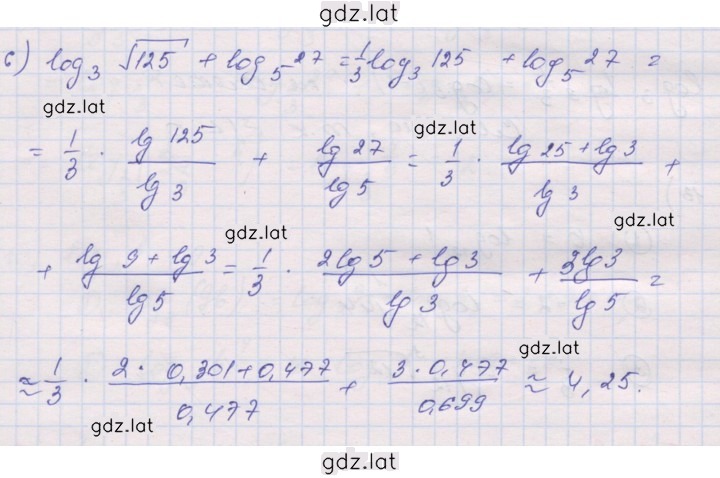 gdz.lat
б) log₃ √125 + log₅ 27 = 1/3 log₃ 125 + log₅ 27 =
gdz.lat
gdz.lat
= 1/3 · lg 125 / lg 3 + lg 27 / lg 5 = 1/3 · (lg 25 + lg 3) / lg 3 +
gdz.lat
gdz.lat
+ (lg 9 + lg 3) / lg 5 = 1/3 · (2 lg 5 + lg 3) / lg 3 + 3 lg 3 / lg 5 =
gdz.lat
≈ 1/3 · (2 · 0,301 + 0,477) / 0,477 + (3 · 0,477) / 0,699 ≈ 4,25.
gdz.lat
gdz.lat